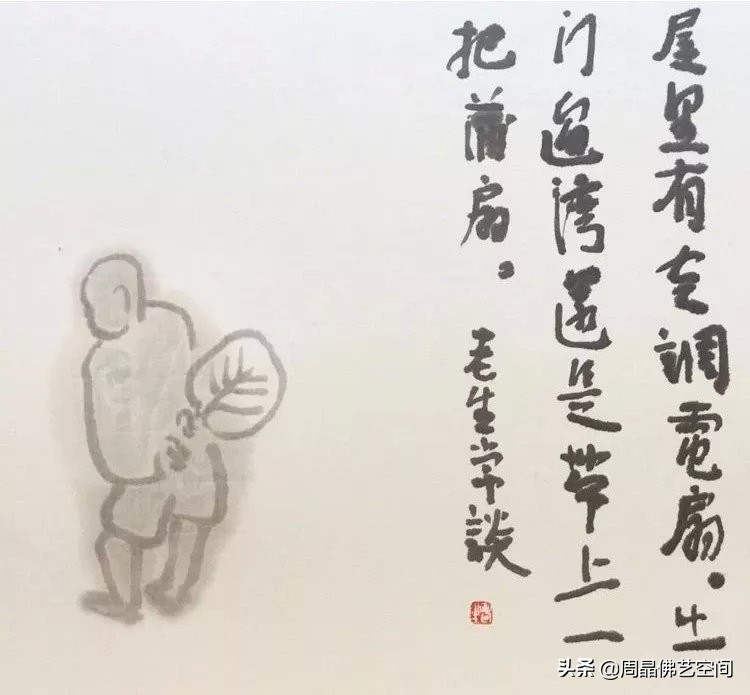 屋里有空調電扇。出
门遛湾還是帶上一
把蒲扇。
老生常談
头条 @周晶佛艺空间